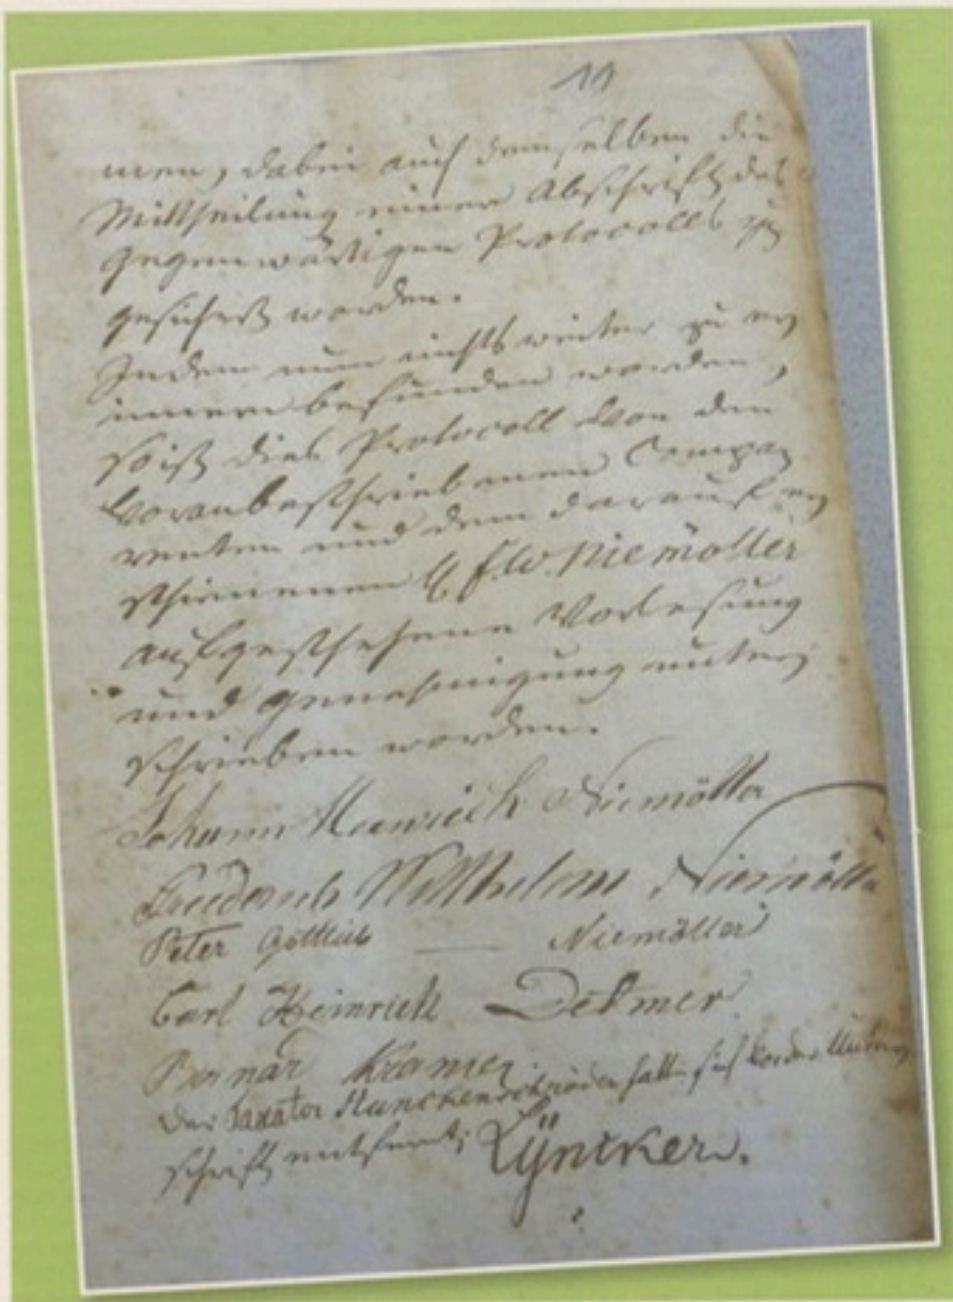 11
men, dabei auch demselben die
Mittheilung einer Abschrift des
gegenwärtigen Protocolls zu
gesichert worden.
Indem nun nichts weiter zu er
innern befunden worden,
so ist dies Protocoll von den
voranbeschriebenen Compa
renten und dem darauf er
schienenen F. W. Niemöller
auf geschehene Vorlesung
und Genehmigung unter
schrieben worden.
Johann Henrich Niemöller
Friederich Willhelm Niemöller
Peter Gottlieb Niemöller
Carl Heinrich Detmer
Bernar Kramer
Der Taxator hatte sich vor der Unter
schrift entfernt.
Lyncker.